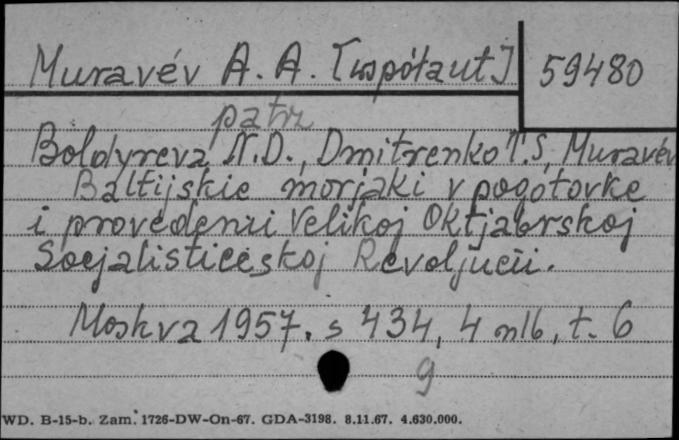 Muravév A. A. [współaut] 59480
patrz
Boldyreva N.D., Dmitrenko T.S, Muravév
Baltijskie morjaki v pogotovke
i provedenii Velikoj Oktjabrskoj
Socjalisticeskoj Revoljucii.
Moskva 1957. s 434, 4 nlb, t. 6
9
WD. B-15-b. Zam. 1726-DW-On-67. GDA-3198. 8.11.67. 4.630.000.